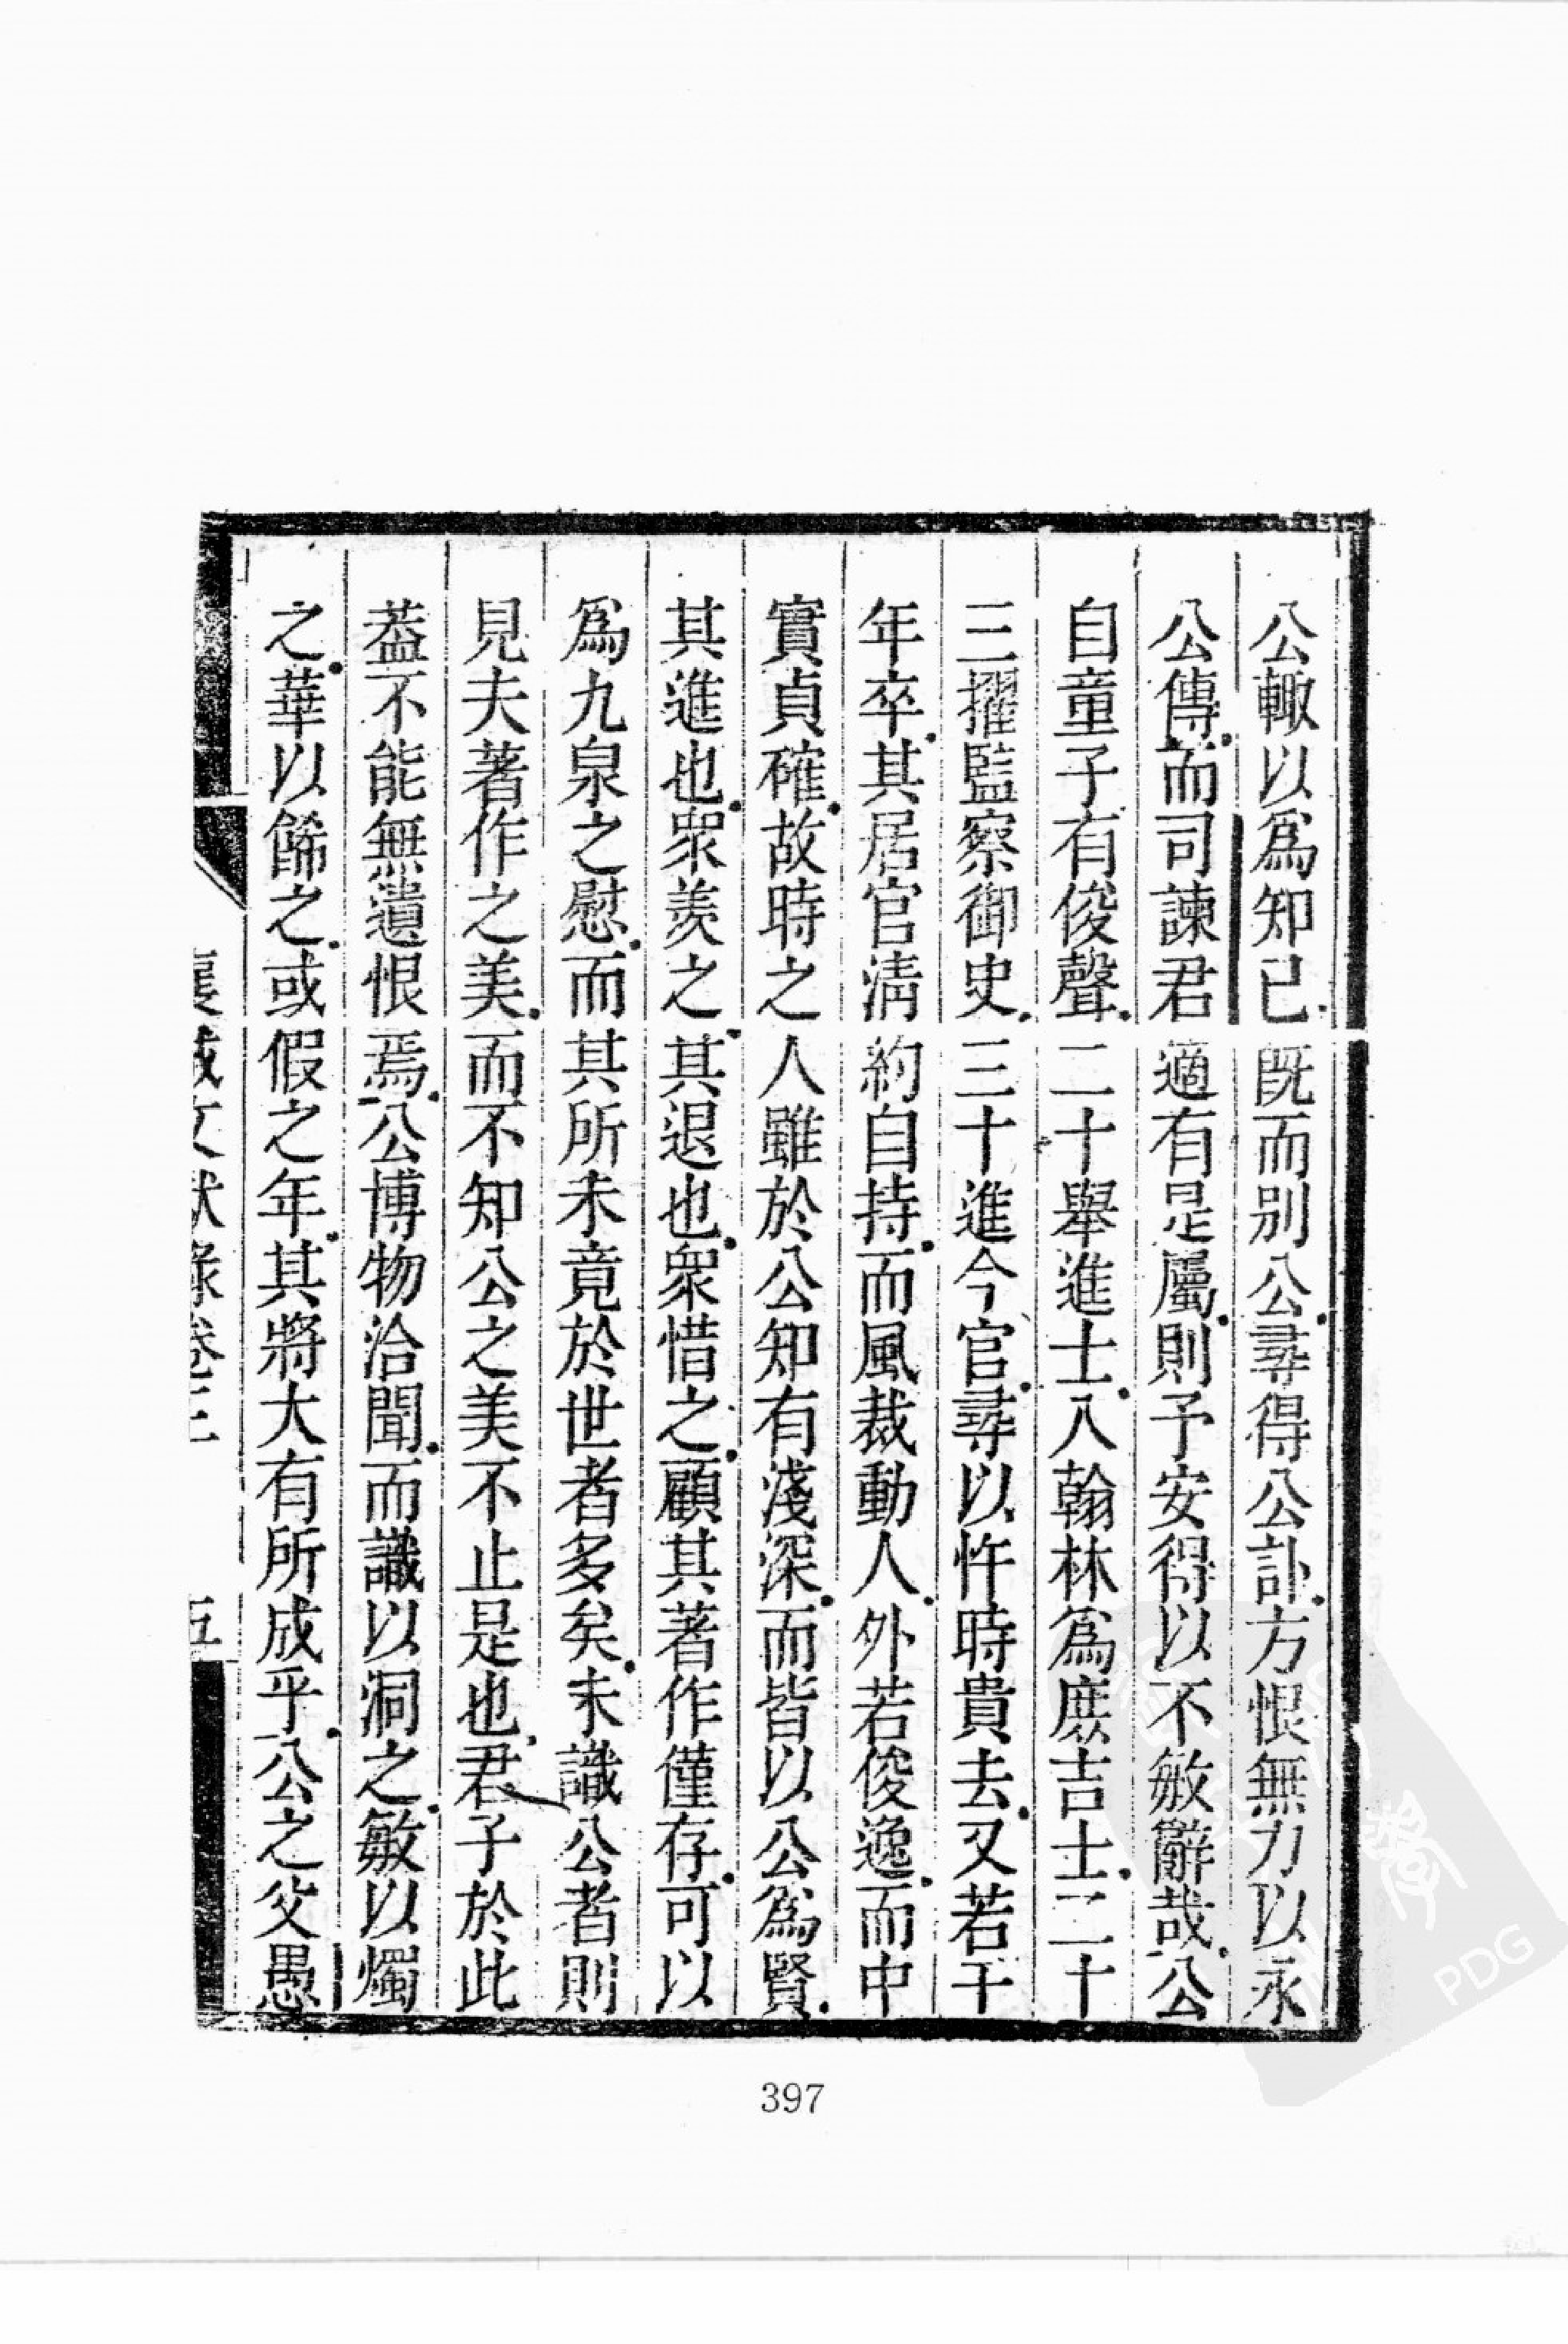 公輙以爲知已旣而别公尋得公訃方恨無力以永
公傳而司諫君適有是屬則予安得以不敏辭哉公
自童子有俊聲二十舉進士入翰林爲庶吉士二十
三擢監察御史三十進今官尋以忤時貴去又若干
年卒其居官清約自持而風裁動人外若俊逸而中
實貞確故時之人雖於公知有淺深而皆以公爲賢
其進也衆羨之其退也衆惜之顧其著作僅存可以
爲九泉之慰而其所未竟於世者多矣未識公者則
見夫著作之美而不知公之美不止是也君子於此
葢不能無遺恨焉公博物洽聞而識以洞之敏以燭
之華以餙之或假之年其將大有所成乎公之父愚
襄城文獻錄卷三
五
397
PDG